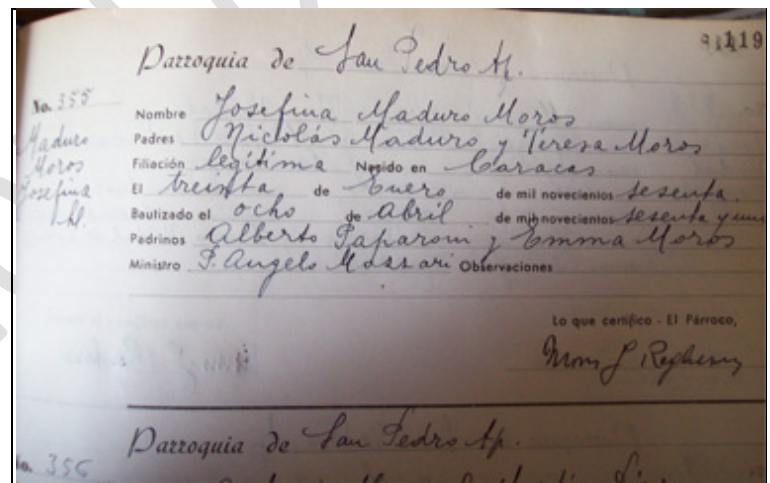 119
Parroquia de San Pedro Ap.
No. 355
Maduro
Moros
Josefina
Nombre Josefina Maduro Moros
Padres Nicolás Maduro y Teresa Moros
Filiación legítima Nacido en Caracas
El treintta de Enero de mil novecientos sesenta.
Bautizado el ocho de Abril de mil novecientos sesenta y uno
Padrinos Alberto Paparoni y Emma Moros
Ministro P. Angelo Massari Observaciones
Lo que certifico - El Párroco,
Parroquia de San Pedro Ap.
No. 356